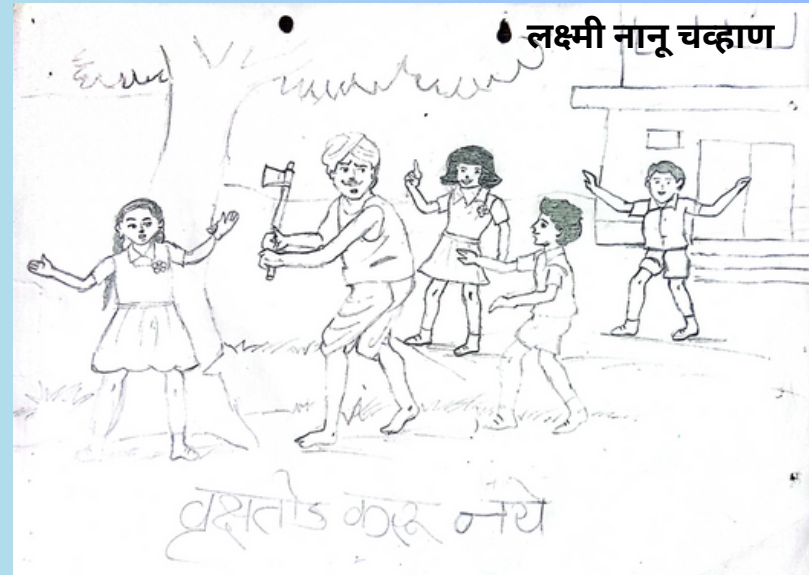 लक्ष्मी नानू चव्हाण
वृक्षतोड करू नये